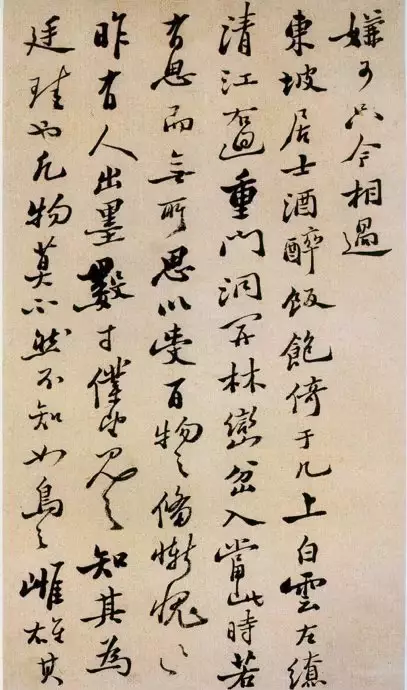 嫌可只今相過
東坡居士酒醉飯飽倚于几上白雲左繚
清江右洄重門洞開林巒岔入當此時若
有思而無所思以受百物之備慚愧〻
昨有人出墨數寸僕望見之知其為
廷珪也凡物莫不然不知如烏之雌雄其